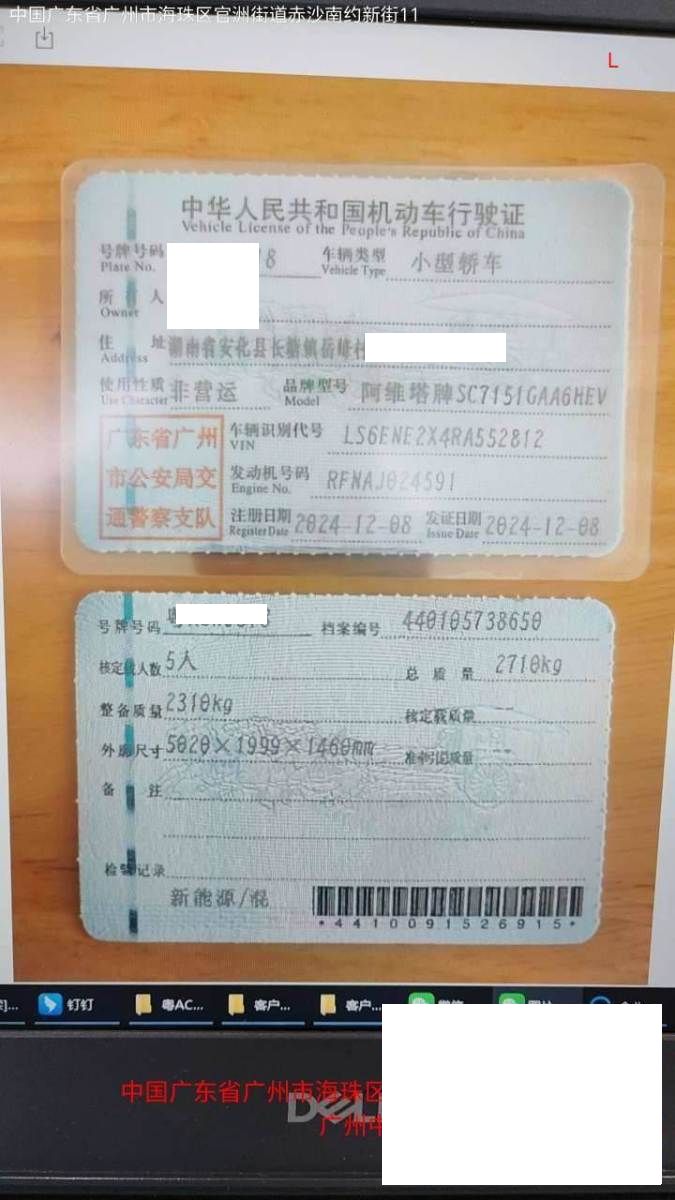 中国广东省广州市海珠区官洲街道赤沙南约新街11
L
中华人民共和国机动车行驶证
Vehicle License of the People's Republic of China
号牌号码 8 车辆类型 小型轿车
Plate No. Vehicle Type
所有人
Owner
住址 湖南省安化县长塘镇岳峰村
Address
使用性质 非营运 品牌型号 阿维塔牌SC7151GAA6HEV
Use Character Model
广东省广州 车辆识别代号 LS6ENE2X4RA552812
VIN
市公安局交 发动机号码 RFNAJ024591
Engine No.
通警察支队 注册日期 2024-12-08 发证日期 2024-12-08
Register Date Issue Date
号牌号码 档案编号 440105738650
核定载人数 5人 总质量 2710kg
整备质量 2310kg 核定载质量 --
外廓尺寸 5020×1999×1460mm 准牵引总质量 --
备注
检验记录
新能源/混
*4410091526915*
钉钉 粤AC... 客户... 客户...
中国广东省广州市海珠区
DELL
广州